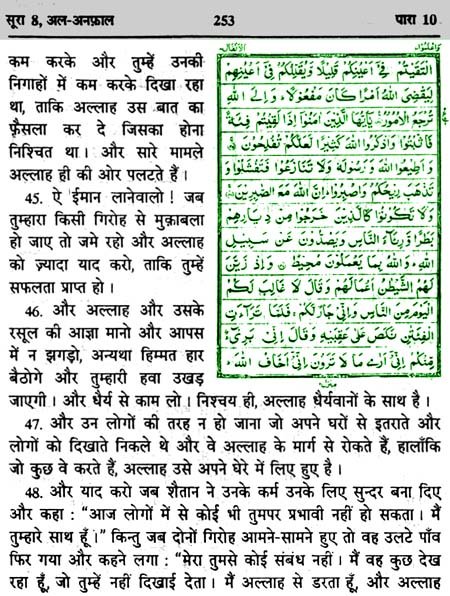 सूरा 8, अल-अनफ़ाल 253 पारा 10
कम करके और तुम्हें उनकी
निगाहों में कम करके दिखा रहा
था, ताकि अल्लाह उस बात का
फ़ैसला कर दे जिसका होना
निश्चित था। और सारे मामले
अल्लाह ही की ओर पलटते हैं।
45. ऐ ईमान लानेवालो! जब
तुम्हारा किसी गिरोह से मुक़ाबला
हो जाए तो जमे रहो और अल्लाह
को ज़्यादा याद करो, ताकि तुम्हें
सफलता प्राप्त हो।
46. और अल्लाह और उसके
रसूल की आज्ञा मानो और आपस
में न झगड़ो, अन्यथा हिम्मत हार
बैठोगे और तुम्हारी हवा उखड़
واعلموا الانفال
الْتَقَيْتُمْ فِيْٓ اَعْيُنِكُمْ قَلِيْلًا وَّيُقَلِّلُكُمْ فِيْٓ اَعْيُنِهِمْ
لِيَقْضِيَ اللّٰهُ اَمْرًا كَانَ مَفْعُوْلًا ۭ وَاِلَى اللّٰهِ
تُرْجَعُ الْاُمُوْرُ يٰٓاَيُّهَا الَّذِيْنَ اٰمَنُوْٓا اِذَا لَقِيْتُمْ فِئَةً
فَاثْبُتُوْا وَاذْكُرُوا اللّٰهَ كَثِيْرًا لَّعَلَّكُمْ تُفْلِحُوْنَ
وَاَطِيْعُوا اللّٰهَ وَرَسُوْلَهٗ وَلَا تَنَازَعُوْا فَتَفْشَلُوْا وَ
تَذْهَبَ رِيْحُكُمْ وَاصْبِرُوْا ۭ اِنَّ اللّٰهَ مَعَ الصّٰبِرِيْنَ
وَلَا تَكُوْنُوْا كَالَّذِيْنَ خَرَجُوْا مِنْ دِيَارِهِمْ
بَطَرًا وَّرِئَاۗءَ النَّاسِ وَيَصُدُّوْنَ عَنْ سَبِيْلِ
اللّٰهِ ۭ وَاللّٰهُ بِمَا يَعْمَلُوْنَ مُحِيْطٌ وَاِذْ زَيَّنَ
لَهُمُ الشَّيْطٰنُ اَعْمَالَهُمْ وَقَالَ لَا غَالِبَ لَكُمُ
الْيَوْمَ مِنَ النَّاسِ وَاِنِّيْ جَارٌ لَّكُمْ ۚ فَلَمَّا تَرَاۗءَتِ
الْفِئَتٰنِ نَكَصَ عَلٰي عَقِبَيْهِ وَقَالَ اِنِّيْ بَرِيْۗءٌ
مِّنْكُمْ اِنِّيْٓ اَرٰى مَا لَا تَرَوْنَ اِنِّيْٓ اَخَافُ اللّٰهَ ۭ
जाएगी। और धैर्य से काम लो। निश्चय ही, अल्लाह धैर्यवानों के साथ है।
47. और उन लोगों की तरह न हो जाना जो अपने घरों से इतराते और
लोगों को दिखाते निकले थे और वे अल्लाह के मार्ग से रोकते हैं, हालाँकि
जो कुछ वे करते हैं, अल्लाह उसे अपने घेरे में लिए हुए है।
48. और याद करो जब शैतान ने उनके कर्म उनके लिए सुन्दर बना दिए
और कहा : “आज लोगों में से कोई भी तुमपर प्रभावी नहीं हो सकता। मैं
तुम्हारे साथ हूँ।” किन्तु जब दोनों गिरोह आमने-सामने हुए तो वह उलटे पाँव
फिर गया और कहने लगा : “मेरा तुमसे कोई संबंध नहीं। मैं वह कुछ देख
रहा हूँ, जो तुम्हें नहीं दिखाई देता। मैं अल्लाह से डरता हूँ, और अल्लाह